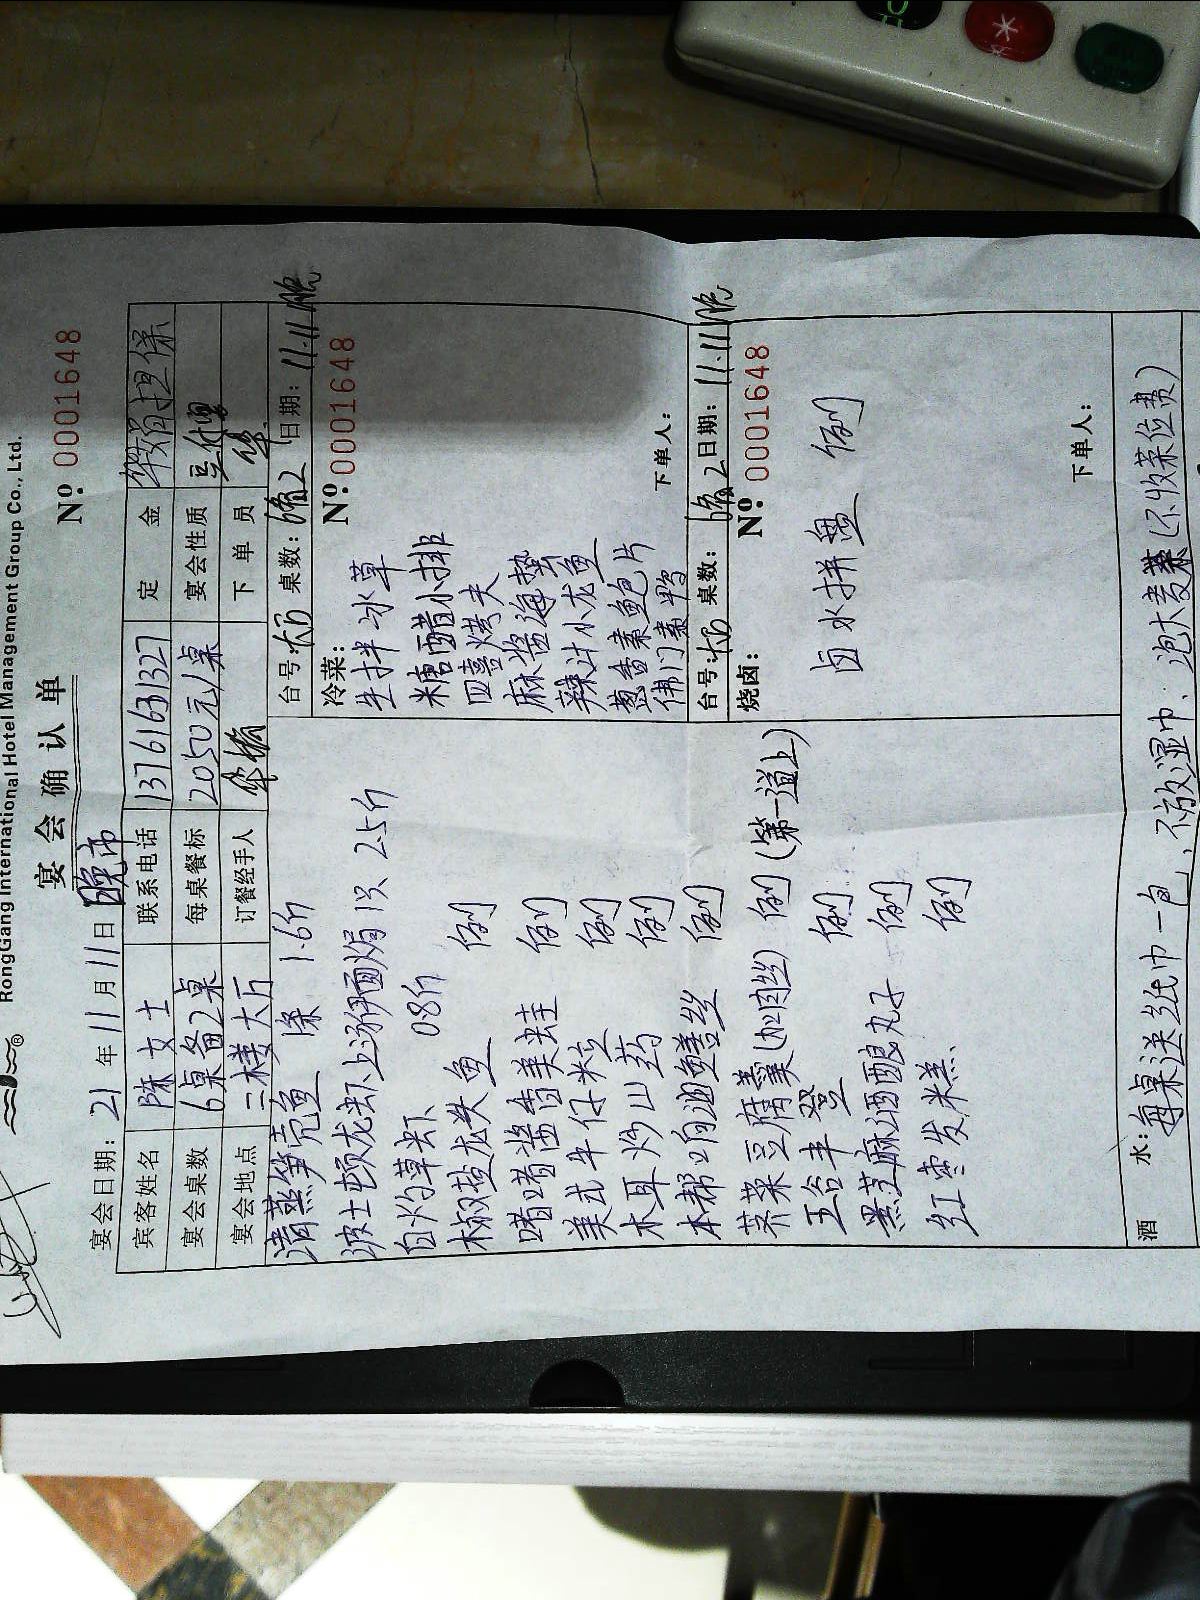 RongGang International Hotel Management Group Co., Ltd.
宴会确认单
宴会日期: 21 年 11 月 11 日 晚市
Nº 0001648
宾客姓名 陈女士 联系电话 13761631327 定金 华娟担保
宴会桌数 6桌备2桌 每桌餐标 2050元/桌 宴会性质
宴会地点 二楼大厅 订餐经手人 下单员
清蒸笋壳鱼 1条 1.6斤
波士顿龙虾上汤伊面焗 1只 2.5斤
白灼草虾 0.8斤
椒盐龙头鱼 例
啫啫酱香美蛙 例
美式牛仔粒 例
木耳炒山药 例
本帮响油鳝丝 例
荠菜豆腐羹(加肉丝) 例 (第一道上)
五谷丰登 例
黑芝麻酒酿丸子 例
红枣发米糕 例
台号: 桌数: 6备2 日期: 11.11晚
冷菜: Nº: 0001648
生拌冰草
糖醋小排
四喜烤夫
麻酱海蜇
辣汁小龙鱼
葱香素鲍片
佛门素鸭
下单人:
台号: 桌数: 6备2 日期: 11.11晚
烧卤: Nº 0001648
卤水拼盘 例
下单人:
酒水: 每桌送纸巾一包, 不放湿巾、泡大麦茶(不收茶位费)